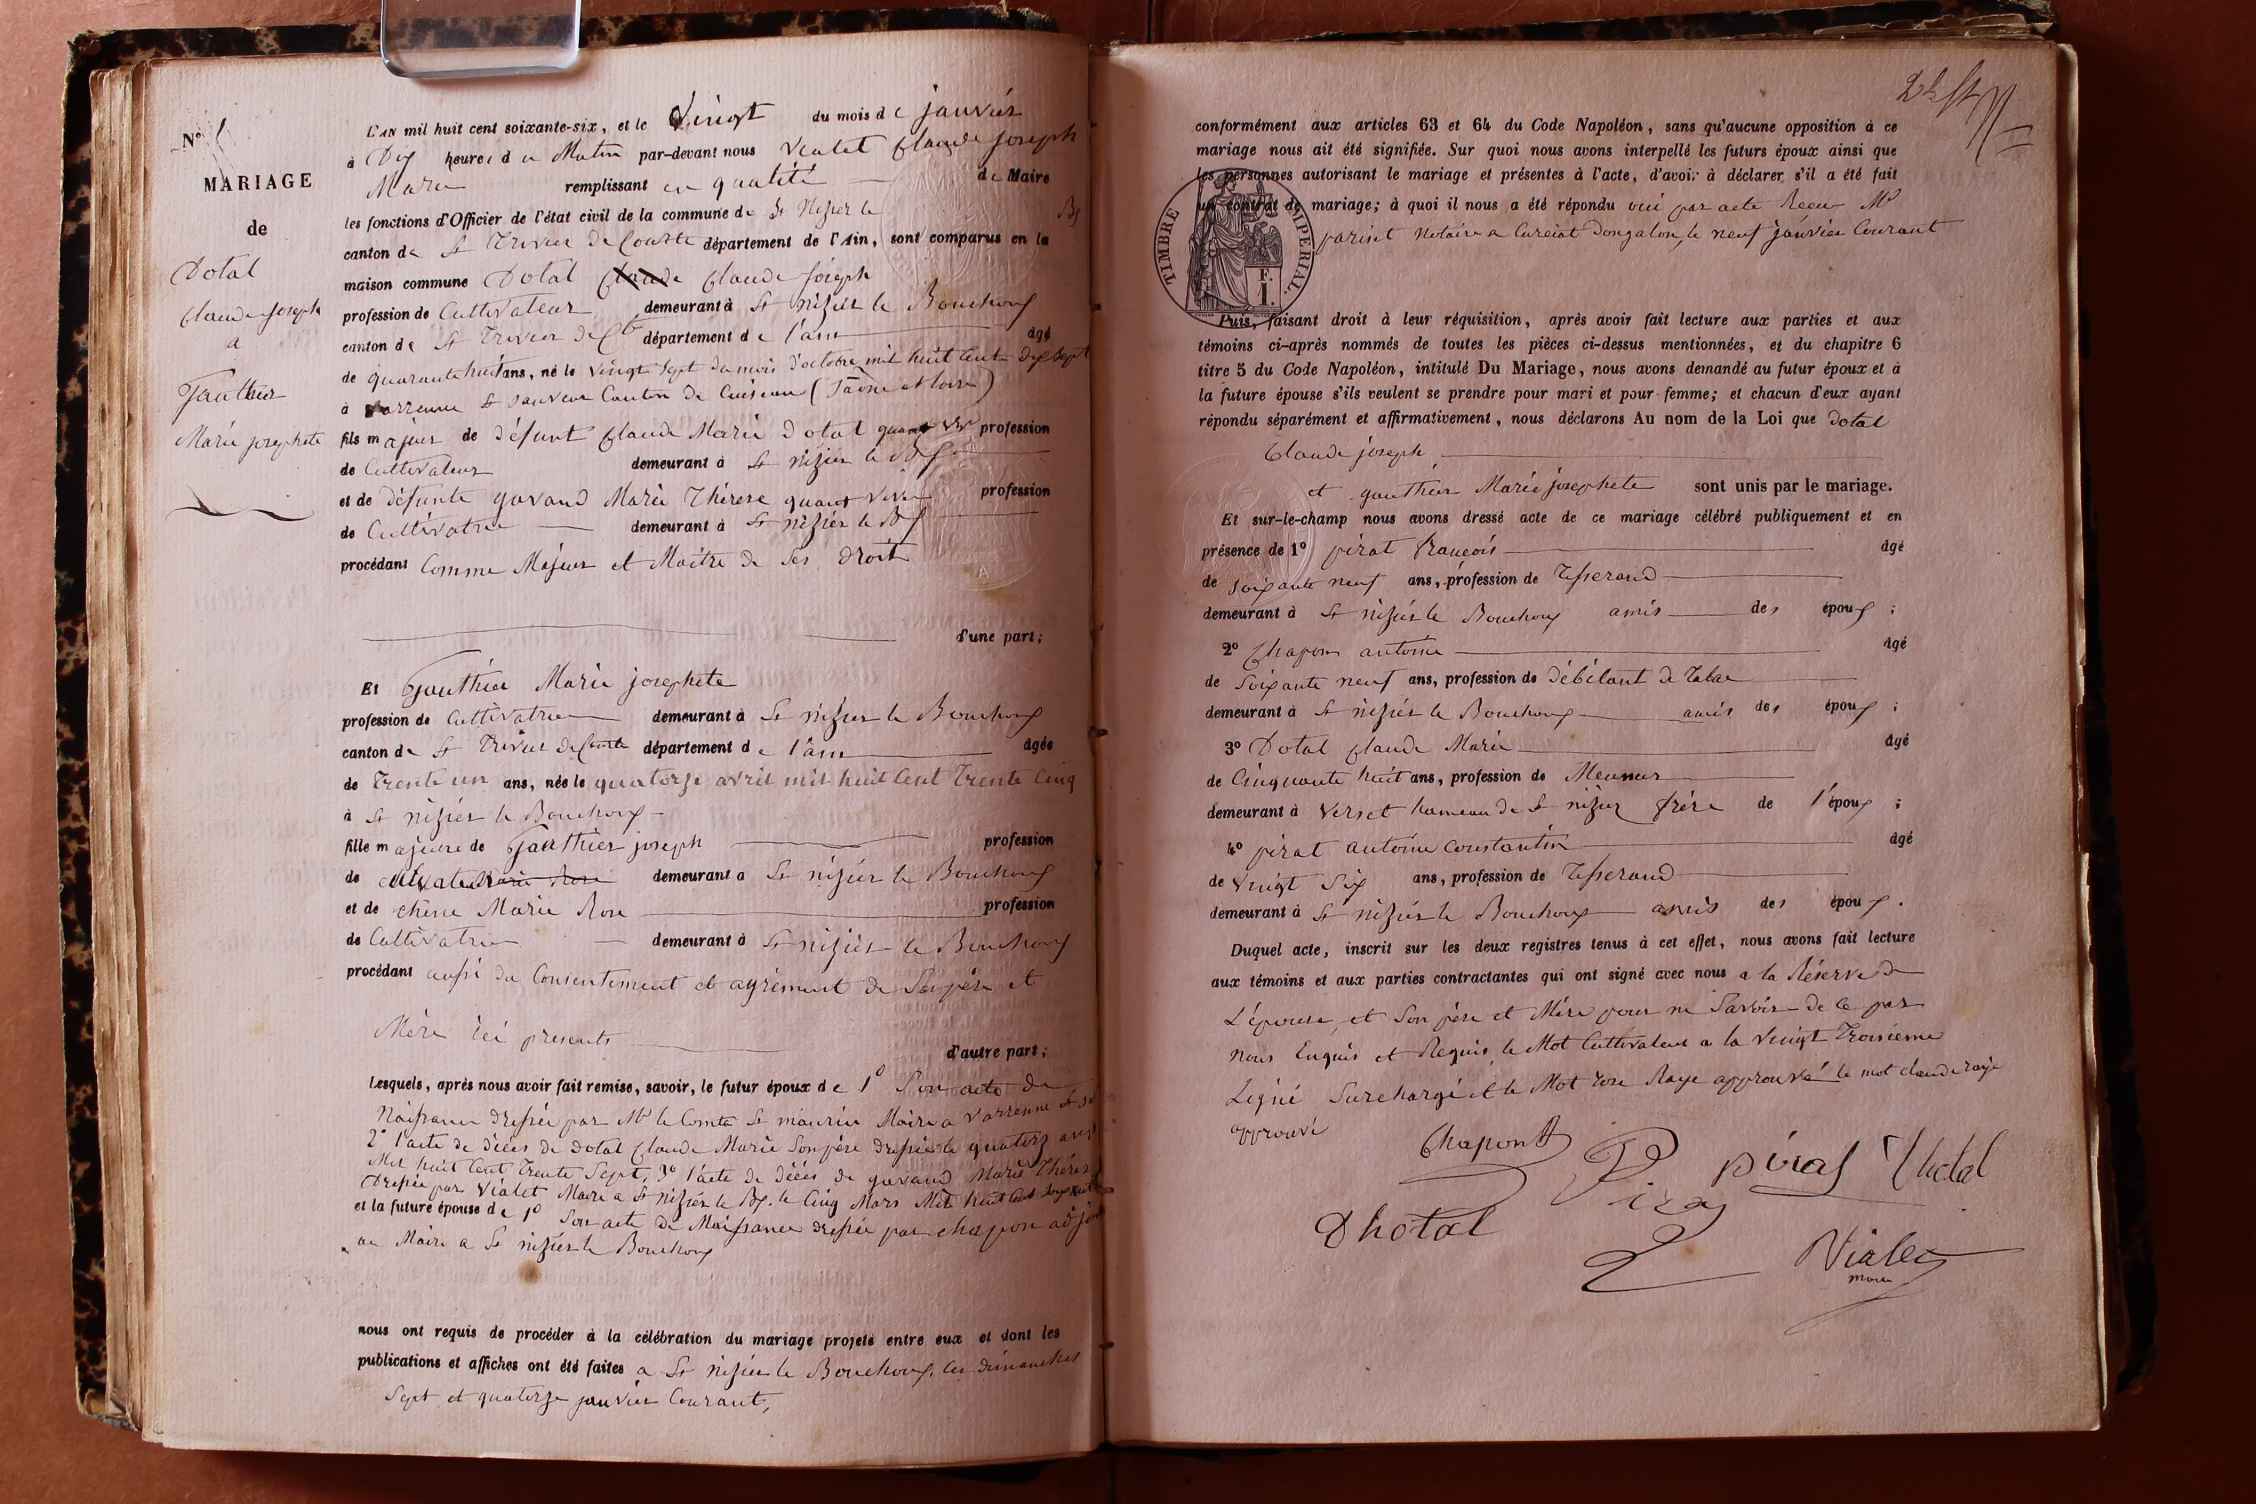 N° 1
MARIAGE
de
Dotal
Claude Joseph
a
Gauthier
Marie josephete
L'AN mil huit cent soixante-six, et le Vingt du mois de janvier
à Dix heures du Matin par-devant nous Vialet Claude joseph
Marie remplissant en qualité de Maire
les fonctions d'Officier de l'état civil de la commune de St Nizier le Bx
canton de St Trivier de Courte département de l'Ain, sont comparus en la
maison commune Dotal Claude Claude Joseph
profession de Cultivateur demeurant à St nizier le Bouchoux
canton de St Trivier de Cte département de l'ain âgé
de quarante huit ans, né le vingt Sept du mois d'octobre mil huit Cent dix Sept
à varenne St Sauveur Canton de Cuiseau (Saône et loire)
fils majeur de défunt Claude Marie dotal quant viv profession
de Cultivateur demeurant à St nizier le Bx
et de défunte gavand Marie Thérese quant vivai profession
de Cultivatrice demeurant à St nizier le Bx
procédant Comme Majeur et Maitre de Ses droit
d'une part;
Et Gauthier Marie josephete
profession de Cultivatrice demeurant à St nizier le Bouchoux
canton de St Trivier de Courte département de l'ain âgée
de Trente un ans, née le quatorze avril mil huit Cent Trente Cinq
à St nizier le Bouchoux
fille majeure de Gauthier joseph profession
de cultivateur demeurant à St nizier le Bouchoux
et de chêne Marie Rose profession
de Cultivatrice demeurant à St nizier le Bouchoux
procédant aussi du Consentement et agrément de Ses père et
Mère ici presents
d'autre part;
Lesquels, après nous avoir fait remise, savoir, le futur époux de 1° Son acte de
Naissance dressée par Mr le Comte St maurin Maire a varenne St
2° l'acte de décès de dotal Claude Marie Son père dressée le quatorze
Mil huit Cent Trente Sept, 3° l'acte de décès de gavand Marie Thérese
dressée par Vialet Maire a St nizier le Bx le Cinq Mars Mil huit Cent
et la future épouse de 1° Son acte de Naissance dressée par chapon adjoi
au Maire a St nizier le Bouchoux
nous ont requis de procéder à la célébration du mariage projeté entre eux et dont les
publications et affiches ont été faites a St nizier le Bouchoux, les dimanches
Sept et quatorze janvier Courant,
conformément aux articles 63 et 64 du Code Napoléon, sans qu'aucune opposition à ce
mariage nous ait été signifiée. Sur quoi nous avons interpellé les futurs époux ainsi que
les personnes autorisant le mariage et présentes à l'acte, d'avoir à déclarer s'il a été fait
un contrat de mariage; à quoi il nous a été répondu oui par acte Recu Mr
pariset Notaire a Curciat Dongalon, le neuf janvier Courant
TIMBRE IMPERIAL.
F.
1.
Puis, faisant droit à leur réquisition, après avoir fait lecture aux parties et aux
témoins ci-après nommés de toutes les pièces ci-dessus mentionnées, et du chapitre 6
titre 5 du Code Napoléon, intitulé Du Mariage, nous avons demandé au futur époux et à
la future épouse s'ils veulent se prendre pour mari et pour femme; et chacun d'eux ayant
répondu séparément et affirmativement, nous déclarons Au nom de la Loi que dotal
Claude joseph
et gauthier Marie josephete sont unis par le mariage.
Et sur-le-champ nous avons dressé acte de ce mariage célébré publiquement et en
présence de 1° pirat françois âgé
de Soixante neuf ans, profession de Tisserand
demeurant à St nizier le Bouchoux amis des époux;
2° Chapon antoine âgé
de Soixante neuf ans, profession de débitant de Tabac
demeurant à St nizier le Bouchoux amis des époux;
3° Dotal Claude Marie âgé
de Cinquante huit ans, profession de Meunier
demeurant à Verset hameau de St nizier frère de l'époux;
4° pirat antoine constantin âgé
de vingt Six ans, profession de Tisserand
demeurant à St nizier le Bouchoux amis des époux.
Duquel acte, inscrit sur les deux registres tenus à cet effet, nous avons fait lecture
aux témoins et aux parties contractantes qui ont signé avec nous a la Réserve de
L'épouse, et Son père et Mère pour ne Savoir de ce par
Nous Enquis et Requis, le Mot Cultivateur a la Vingt Troisieme
Ligne Surchargé et le Mot rose Raye approuvé le mot claude rayé
approuvé
Chapon
Piras
piras
Dhotal
Dhotal
Vialet
maire